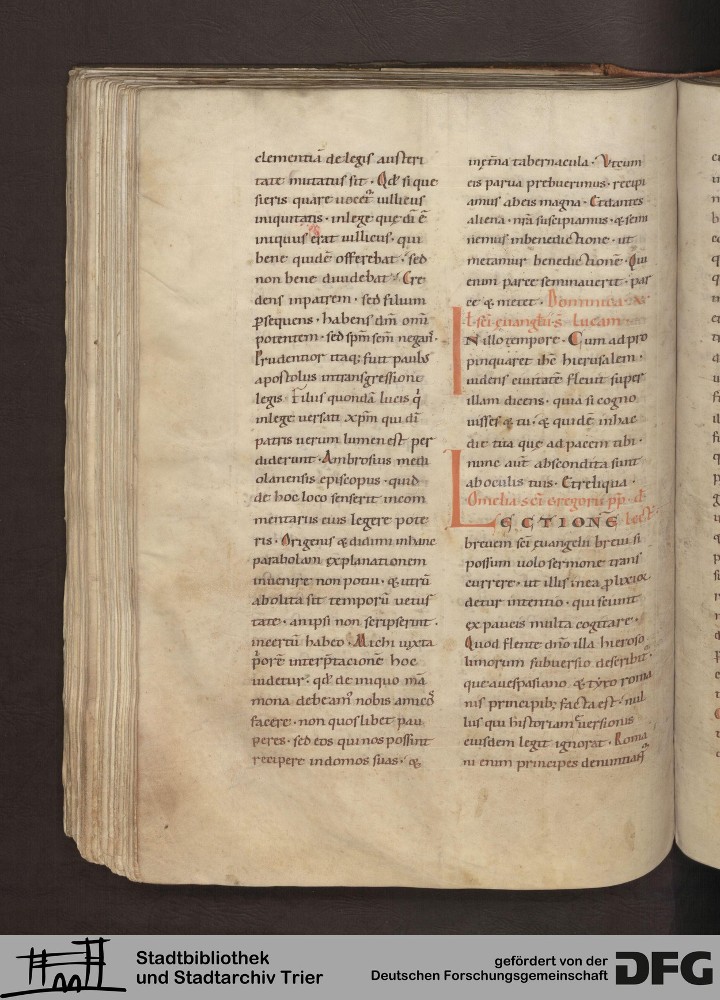 clementiā de legis austeri
tate mutatus sit · Qd' si que
sieris quare vocet᷑ uillicus
iniquitatis · in lege que dī ē
iniquus erat uillicus · qui
bene quidē offerebat · sed
non bene diuidebat · Cre
dens in patrem · sed filium
p̱sequens · habens dm̄ om̄i
potentem · sed spm̄ scm̄ negan̄ ·
Prudentior itaq; fuit paulus
apostolus in transgressione
legis filiis quondā lucis q̇
in lege uersati xp̄m qui dī
patris uerum lumen est per
diderunt · Ambrosius medi
olanensis episcopus · quid
de hoc loco senserit in com
mentariis eius legere pote
ris · Origenis & didimi in hanc
parabolam explanationem
inuenire non potui · & utrū
abolita sit temporū uetus
tate · an ipsi non scripserint ·
incertū habeo · Michi iuxta
p̍orē interp̄tacionē hoc
uidetur · qd' de iniquo mā
mona debeam᷒ nobis amicos
facere · non quoslibet pau
peres · sed eos qui nos possint
recipere in domos suas · &
in et̄na tabernacula · Vt cum
eis parua prebuerimus · recipi
amus ab eis magna · Et dantes
aliena · nr̄a suscipiamus · & semi
nemus in benedictione · ut
metamur benedictionē · Qui
enim parce seminauerit · par
ce & metet · Dominica · x ·
sc̄i euangl̄ii s̄ Lucam ·
IN illo tempore · Cum ad pro
pinquaret ihc̄ hierusalem ·
uidens ciuitatē fleuit super
illam dicens · quia si cogno
uisses & tu · & quidē in hac
die tua que ad pacem tibi ·
nunc aut̄ abscondita sunt
ab oculis tuis · Et reliqua ·
Omelia sc̄i Gregorii pp̄ · d'
LECTIONĒ lect
breuem sc̄i euangelii breui si
possum uolo sermone trans
currere · ut illis in ea p̱lixior
detur intentio · qui sciunt
ex paucis multa cogitare ·
Quod flente dn̄o illa hieroso
limorum subuersio describit᷑ ·
que a uespasiano & tyto roma
nis principib; facta est · nul
lus qui historiam euersionis
eiusdem legit ignorat · Roma
ni enim principes denuntiant᷑
Stadtbibliothek
und Stadtarchiv Trier
gefördert von der
Deutschen Forschungsgemeinschaft
DFG